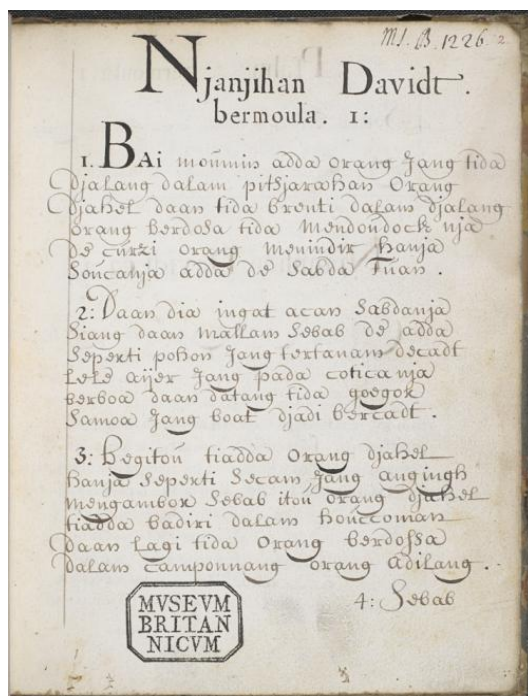 MS. B. 1226. 2
Njanjihan Davidt.
bermoula. 1:
1. BAi moumin adda orang Jang tida
djalang dalam pitsjarahan orang
djahel daan tida brenti dalam djalang
orang berdosa tida Mendoudock nja
de curzi orang Menindir hanja
Soucanja adda de Sabda Tuan.
2: Daan dia ingat acan Sabdanja
Siang daan Mallam Sebab de adda
Seperti pohon Jang tertanam decadt
Lele aijer Jang pada cotica nja
berboa daan datang tida goegor
Samoa Jang boat djadi bercadt.
3: Begitou tiadda orang djahel
hanja Seperti Secam Jang anginch
mengambor Sebab itou orang djahel
tiadda badiri dalam houccoman
daan Lagi tida orang berdossa
dalam camponnang orang adilang.
4: Sebab
MVSEVM
BRITAN
NICVM